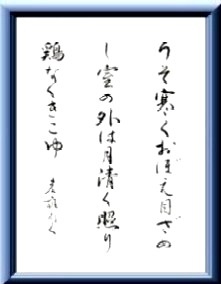 うそ寒くおぼえ目ざめ
し室の外は月清く照り
鶏なくきこゆ